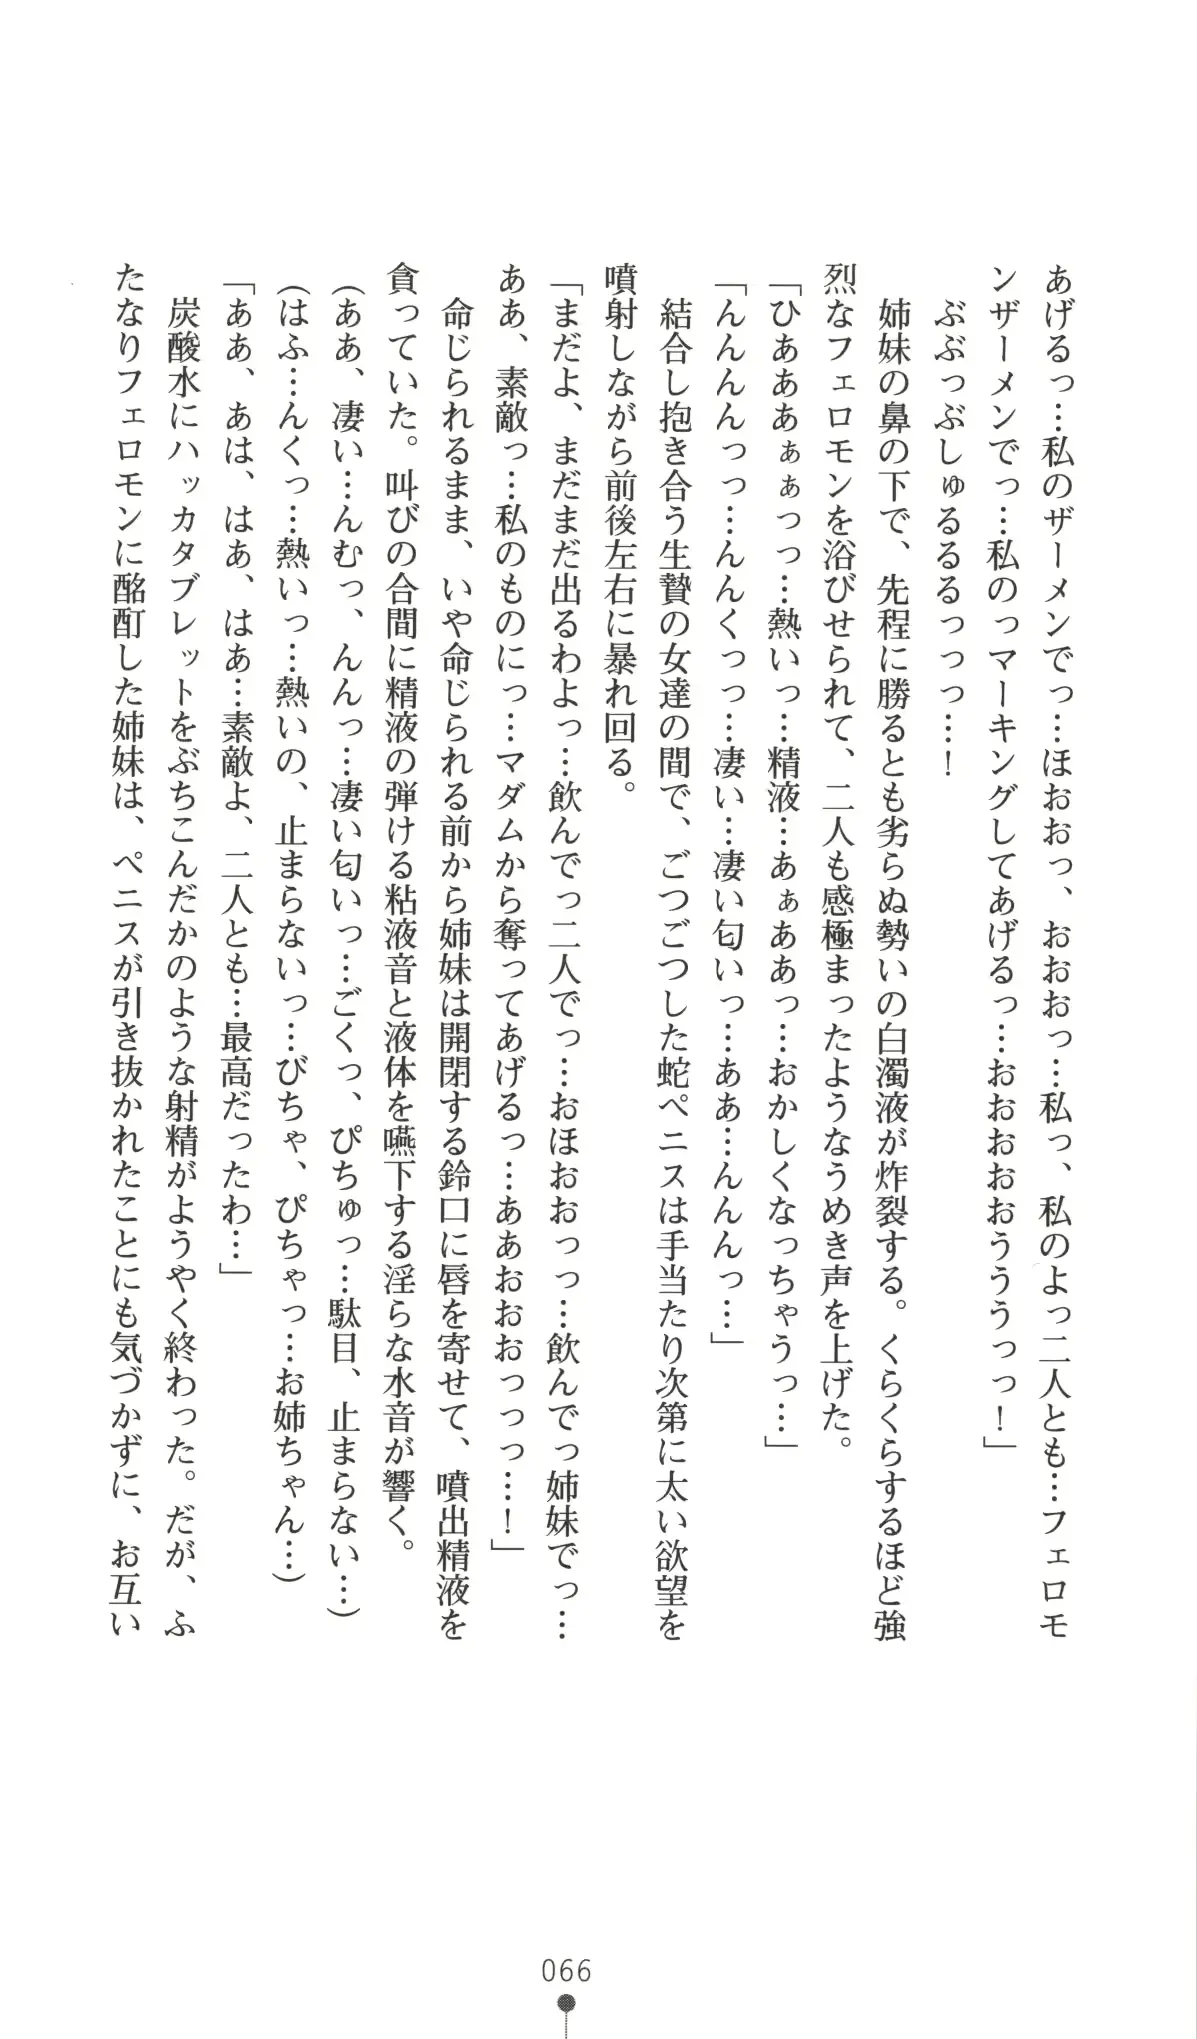 あげるっ…私のザーメンでっ…ほおおっ、おおおっ…私っ、私のよっ二人とも…フェロモ
ンザーメンでっ…私のっマーキングしてあげるっ…おおおおおうううっっ！」
ぶぶっぶしゅるるるっっっ…！
姉妹の鼻の下で、先程に勝るとも劣らぬ勢いの白濁液が炸裂する。くらくらするほど強
烈なフェロモンを浴びせられて、二人も感極まったようなうめき声を上げた。
「ひあああぁぁっっ…熱いっ…精液…あぁああっ…おかしくなっちゃうっ…」
「んんんんっっ…んんくっっ…凄い…凄い匂いっ…ああ…んんんっ…」
結合し抱き合う生贄の女達の間で、ごつごつした蛇ペニスは手当たり次第に太い欲望を
噴射しながら前後左右に暴れ回る。
「まだよ、まだまだ出るわよっ…飲んでっ二人でっ…おほおおっっ…飲んでっ姉妹でっ…
ああ、素敵っ…私のものにっ…マダムから奪ってあげるっ…ああおおおっっっ…！」
命じられるまま、いや命じられる前から姉妹は開閉する鈴口に唇を寄せて、噴出精液を
貪っていた。叫びの合間に精液の弾ける粘液音と液体を嚥下する淫らな水音が響く。
（ああ、凄い…んむっ、んんっ…凄い匂いっ…ごくっ、ぴちゅっ…駄目、止まらない…）
（はふ…んくっ…熱いっ…熱いの、止まらないっ…びちゃ、ぴちゃっ…お姉ちゃん…）
「ああ、あは、はあ、はあ…素敵よ、二人とも…最高だったわ…」
炭酸水にハッカタブレットをぶちこんだかのような射精がようやく終わった。だが、ふ
たなりフェロモンに酩酊した姉妹は、ペニスが引き抜かれたことにも気づかずに、お互い
066